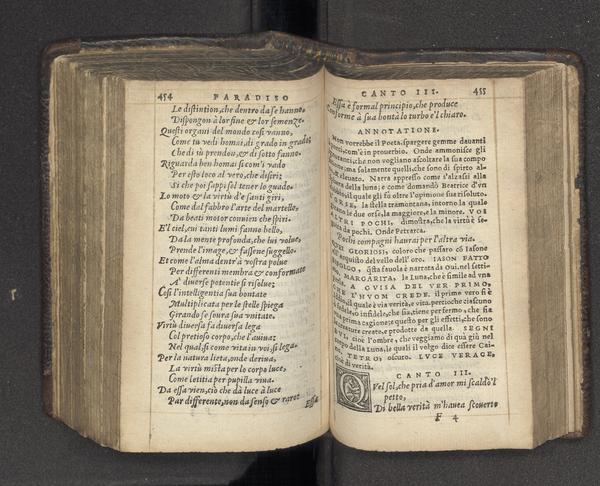 454 PARADISO
Le distintion, che dentro da se hanno,
Dispongon à lor fine & lor semenze.
Questi organi del mondo cosi vanno,
Come tu vedi homai, di grado in grado;
Che di sù prendon, & di sotto fanno.
Riguarda ben homai si com'i vado
Per esto loco al vero, che disiri;
Si che poi sappi sol tener lo guado.
Lo moto & la virtù d'e santi giri,
Come dal fabbro l'arte del martello,
Da beati motor convien che spiri.
E'l ciel, cui tanti lumi fanno bello,
Da la mente profonda, che lui volue,
Prende l'image, & fassene suggello.
Et come l'alma dentr'à vostra polue
Per differenti membra & conformate
A' diverse potentie si risolue;
Cosi l'intelligentia sua bontate
Multiplicata per le stelle spiega
Girando se soura sua vnitate.
Virtù diversa fa diversa lega
Col pretioso corpo, che l'auiua;
Nel qual, si come vita in voi, si lega.
Per la natura lieta, onde deriva,
La virtù mista per lo corpo luce,
Come letitia per pupilla viva.
Da essa vien, ciò che dà luce à luce
Par differente, non da denso & raro:
Essa
CANTO III. 455
Essa è formal principio, che produce
Conforme à sua bontà lo turbo e'l chiaro.
ANNOTATIONE.
Non vorrebbe il Poeta, spargere gemme davanti
porci, com'è in prouerbio. Onde ammonisce gli
che non vogliano ascoltare la sua compo
ma solamente quelli, che sono di spirto al-
eleuato. Narra appresso come s'alzasi alla
della luna; e come domandò Beatrice d'vn
il quale gli fù oltre l'opinione sua risoluto.
la stella tramontana, intorno la quale
le due orse, la maggiore, e la minore. VOS
ALTRI POCHI, dimostra, che la virtù è se-
da pochi. Onde Petrarca.
Pochi compagni haurai per l'altra via.
GLORIOSI, coloro che passaro cō Iasone
acquisto del vello dell'oro. IASON FATTO
BOLCO, q̃sta fauola è narrata da Oui. nel setti-
MARGARITA, la Luna, che è simile ad vna
A GUISA DEL VER PRIMO,
CHE L'HVOM CREDE. il primo vero si è
il quale è via verità, e vita. perciò che ciascuno
ò infidele, che sia, tiene per fermo, che sia
prima cagione: e questo per gli effetti, che sono
creature create, e prodotte da quella. SEGNI
cioè l'ombre, che veggiamo di quà giù nel
corpo della Luna, le quali il volgo dice essere Cai-
TETRO, oscuro. LVCE VERACE,
di verità.
CANTO III.
Vel sol, che pria d'amor mi scaldò'l
petto,
Di bella verità m'hauea scouerto
F 4